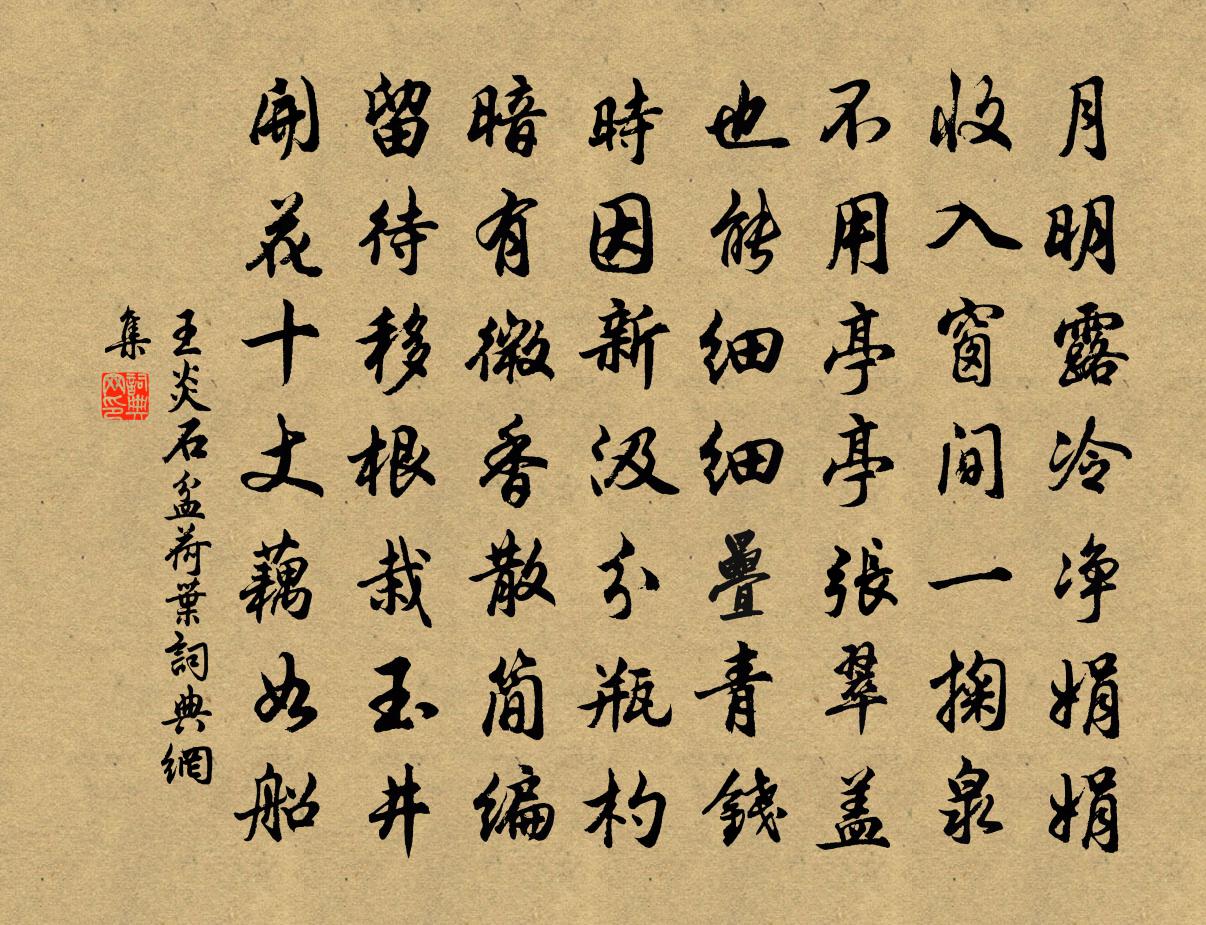 月明露冷净娟娟
收入窗间一掬泉
不用亭亭張翠盖
也能细细疊青錢
時因新汲分瓶杓
暗有微香散简编
留待移根栽玉井
開花十丈藕如船
王炎石盆荷葉詞典網
集
詞典
网印